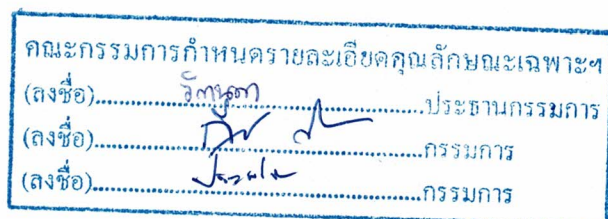 คณะกรรมการกำหนดรายละเอียดคุณลักษณะเฉพาะฯ
(ลงชื่อ)....................................................ประธานกรรมการ
(ลงชื่อ)....................................................กรรมการ
(ลงชื่อ)....................................................กรรมการ